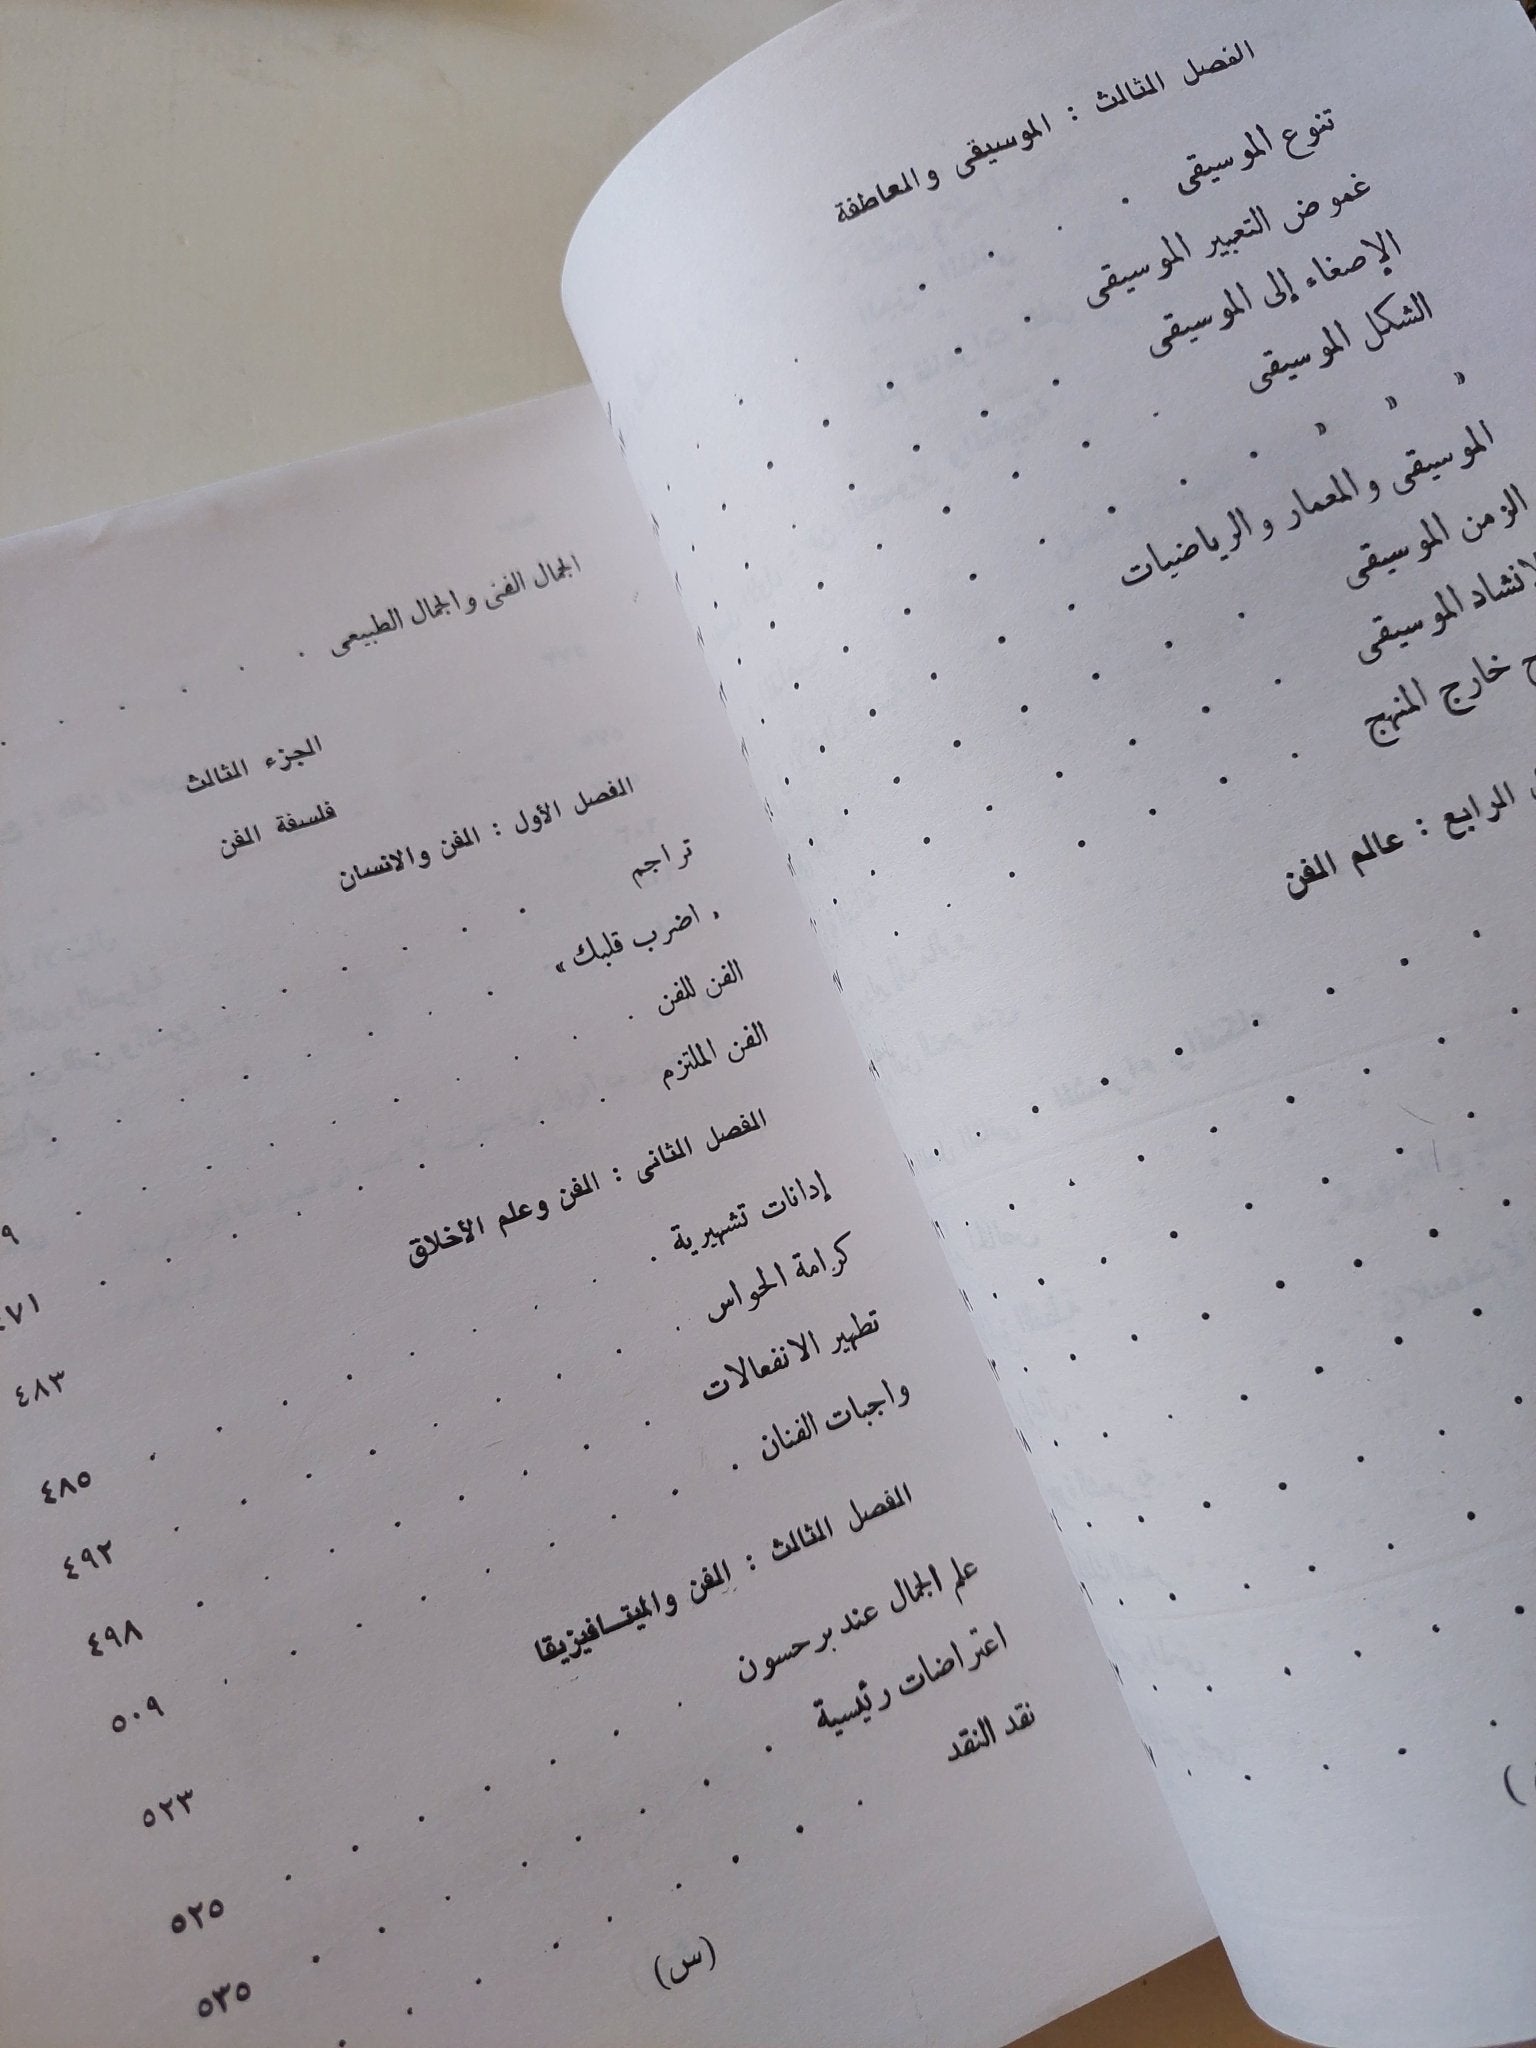 الفصل الثالث : الموسيقى والعاطفة
تنوع الموسيقى
غموض التعبير الموسيقى
الإصغاء إلى الموسيقى
الشكل الموسيقى
» » »
الموسيقى والمعمار والرياضيات
الزمن الموسيقى
الموسيقى
خارج المنهج
الرابع : عالم الفن
الجمال الفنى والجمال الطبيعى
الجزء الثالث
فلسفة الفن
الفصل الأول : الفن والانسان
تراجم
« اضرب قلبك »
الفن للفن
الفن الملتزم
الفصل الثانى : الفن وعلم الأخلاق
إدانات تشهيرية ٤٨٣
كرامة الحواس ٤٨٥
تطهير الانفعالات ٤٩٢
واجبات الفنان ٤٩٨
الفصل الثالث : الفن والميتافيزيقا ٥٠٩
علم الجمال عند برحسون ٥٢٣
اعتراضات رئيسية ٥٢٥
نقد النقد ٥٣٥
(س)